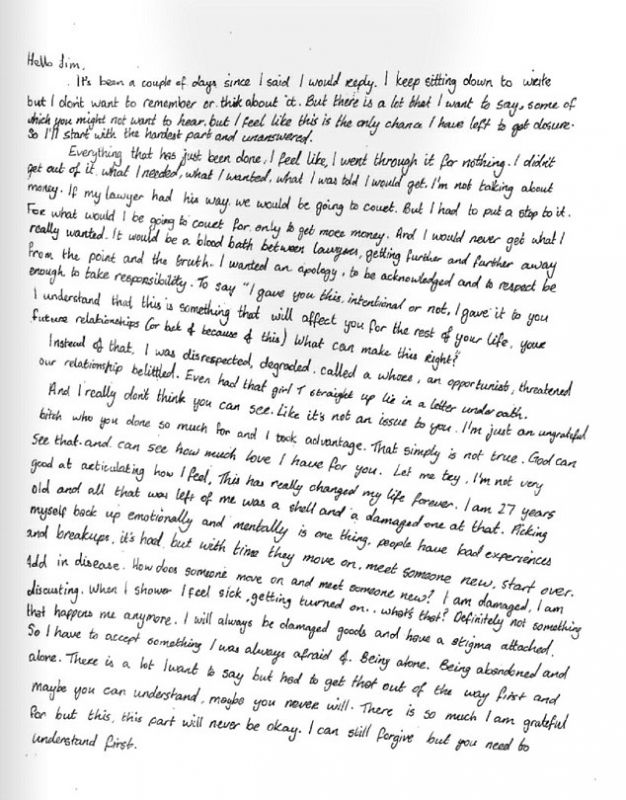 Hello Jim,
It's been a couple of days since I said I would reply. I keep sitting down to write
but I dont want to remember or thik about it. But there is a lot that I want to say, some of
which you might not want to hear, but I feel like this is the only chance I have left to get closure.
So I'll start with the hardest part and unanswered.
Everything that has just been done, I feel like, I went through it for nothing. I didn't
get out of it, what I needed, what I wanted, what I was told I would get. I'm not talking about
money. If my lawyer had his way we would be going to court. But I had to put a stop to it.
For what would I be going to court for, only to get more money. And I would never get what I
really wanted. It would be a blood bath between lawyers, getting further and further away
from the point and the truth. I wanted an apology, to be acknowledged and to respect be
enough to take responsibility. To say "I gave you this, intentional or not, I gave it to you
I understand that this is something that will affect you for the rest of your life, your
future relationships (or lack of because of this) What can make this right?"
Instead of that, I was disrespected, degraded, called a whore, an opportunist, threatened
our relationship belittled. Even had that girl T straight up lie in a letter under oath.
And I really dont think you can see. Like it's not an issue to you. I'm just an ungrateful
bitch who you done so much for and I took advantage. That simply is not true. God can
see that and can see how much love I have for you. Let me try, I'm not very
good at articulating how I feel. This has really changed my life forever. I am 27 years
old and all that was left of me was a shell and a damaged one at that. Picking
myself back up emotionally and mentally is one thing, people have bad experiences
and breakups, it's had, but with time they move on, meet someone new, start over.
Add in disease. How does someone move on and meet someone new? I am damaged, I am
discusting. When I shower I feel sick, getting turned on.. what's that? Definitely not something
that happens me anymore. I will always be damaged goods and have a stigma attached.
So I have to accept something I was always afraid of. Being alone. Being abandoned and
alone. There is a lot I want to say but had to get that out of the way first and
maybe you can understand, maybe you never will. There is so much I am grateful
for but this, this part will never be okay. I can still forgive but you need to
understand first.